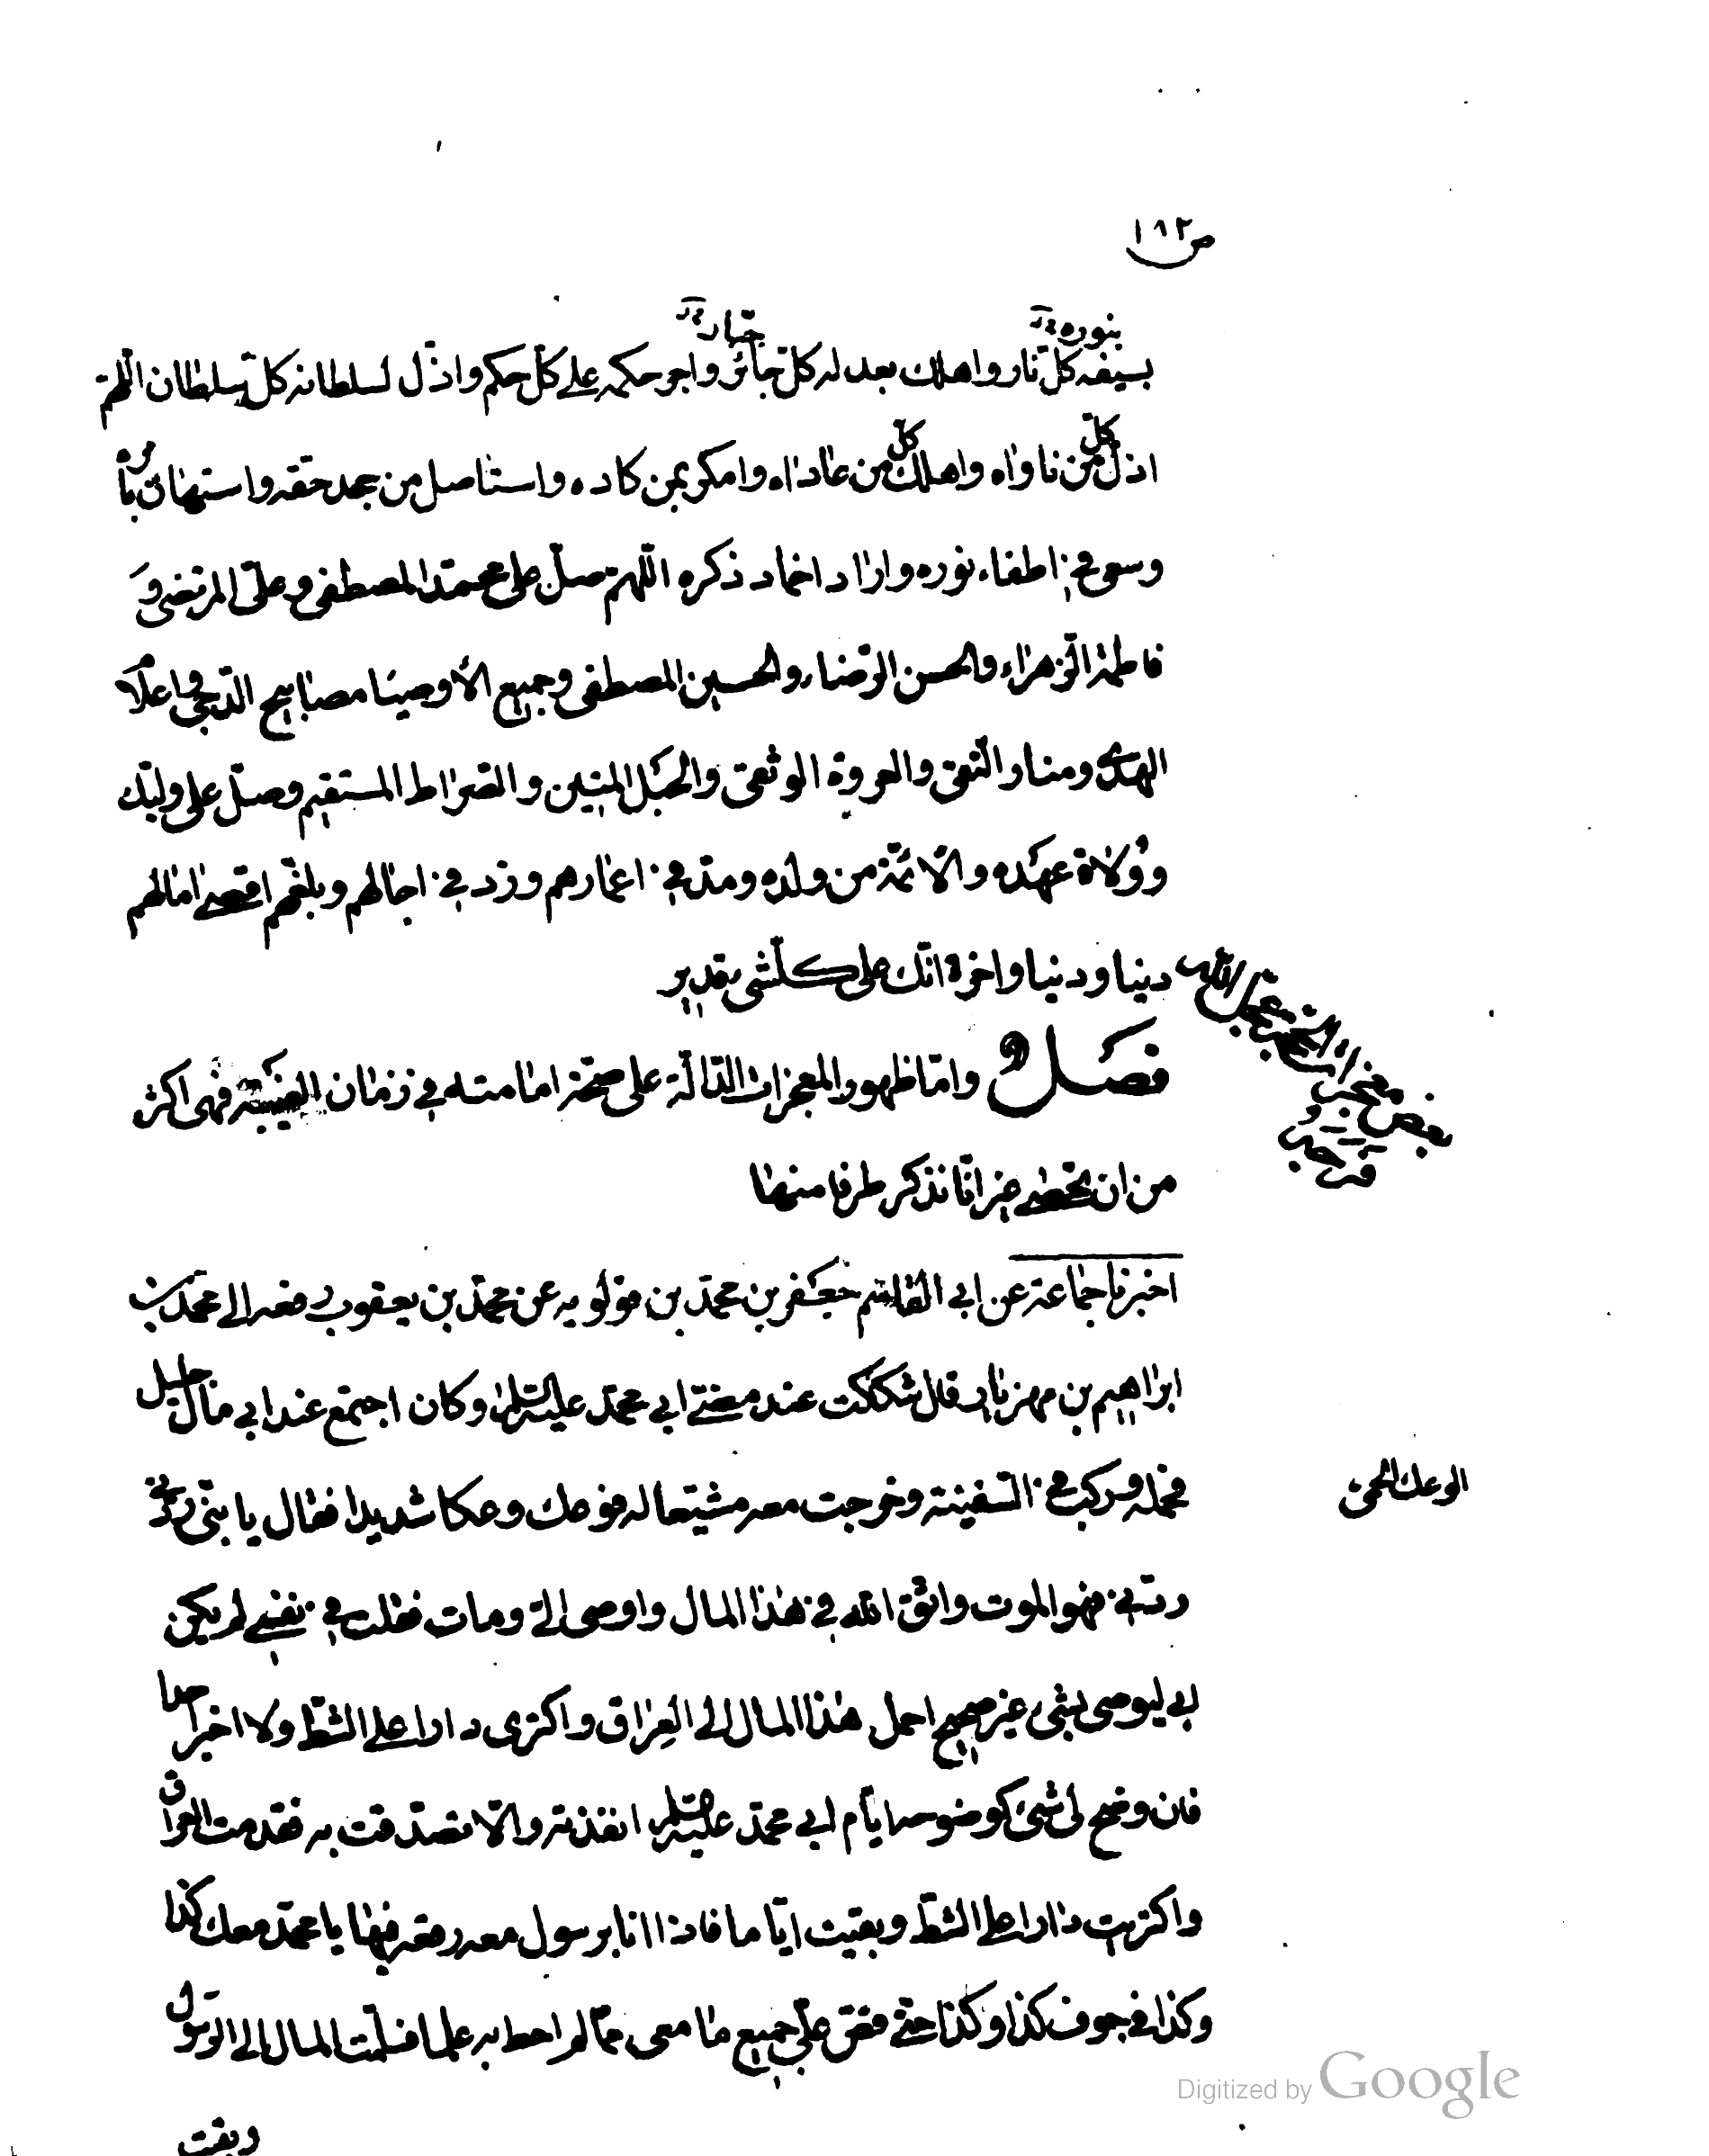 ص ١٨٢
بنوره خ‍
جبار خ‍
بسيفه كلّ نار واهلك بعدله كلّ جائر واجر حكمه على كلّ حكم واذلّ لسلطانه كلّ سلطان اللهمّ
اذلّ كلّ من ناواه واهلك كلّ من عاداه وامكر بمن كاده واستاصل من جحد حقه واستهان بامره
وسعى في اطفاء نوره واراد اخماد ذكره اللّهمّ صلّ على محمّد المصطفى وعلىّ المرتضى وَ
فاطمة الزهراء والحسن الرّضا والحسين المصطفى وجميع الأوصيا مصابيح الدّجى واعلام
الهدى ومنار التّقى والعروة الوثقى والحَبل المتين والصّراط المستقيم وصلّ على وليّك
ووُلاة عَهده والائمّة من ولده ومدّ في اعمارهم وزد في اجالهم وبلغهم اقصى امالهم
دينا ودنيا واخرة انّك على كلّشى قدير
فصل وامّا ظهور المعجزات الدّالّة على صحّة امامته في زمان الغيبَة فهى اكثر
من ان تحصى غير انّا نذكر طرفا منها
اخبرنا جماعة عن ابى القاسم جعفر بن محمّد بن قولويه عن محمّد بن يعقوب رفعه الى محمّد بن
ابراهيم بن مهزيار قال شككت عند مضىّ ابى محمّد عليه السّلام وكان اجتمع عند ابى مال جليل
فحمله وركب في السّفينة وخرجت معه مشيّعا له فوعك وعكا شديدا فقال يا بنىّ ردّني
الوعك الحمى
ردّني فهو الموت واتّق الله في هذا المال واوصى الىّ ومات فقلت في نفسى لم يكن
ابى ليوصى بشىء غير صحيح احمل هذا المال الى العراق واكترى دارا على الشطّ ولا اخبر احدا
فان وضح لى شىء كوضوحه ايّام ابى محمّد عليه السّلم انفذته والّا تصدّقت به فقدمت العراق
واكتريت دارا على الشطّ وبقيت ايّاما فاذا انا برسول معه رقعة فيها يا محمّد معك كذا
وكذا في جوف كذا وكذا حتّى قصّ علىّ جميع ما معى ممّا لم احط به علما فسلّمت المال الى الرّسول
وبقيت
Digitized by Google